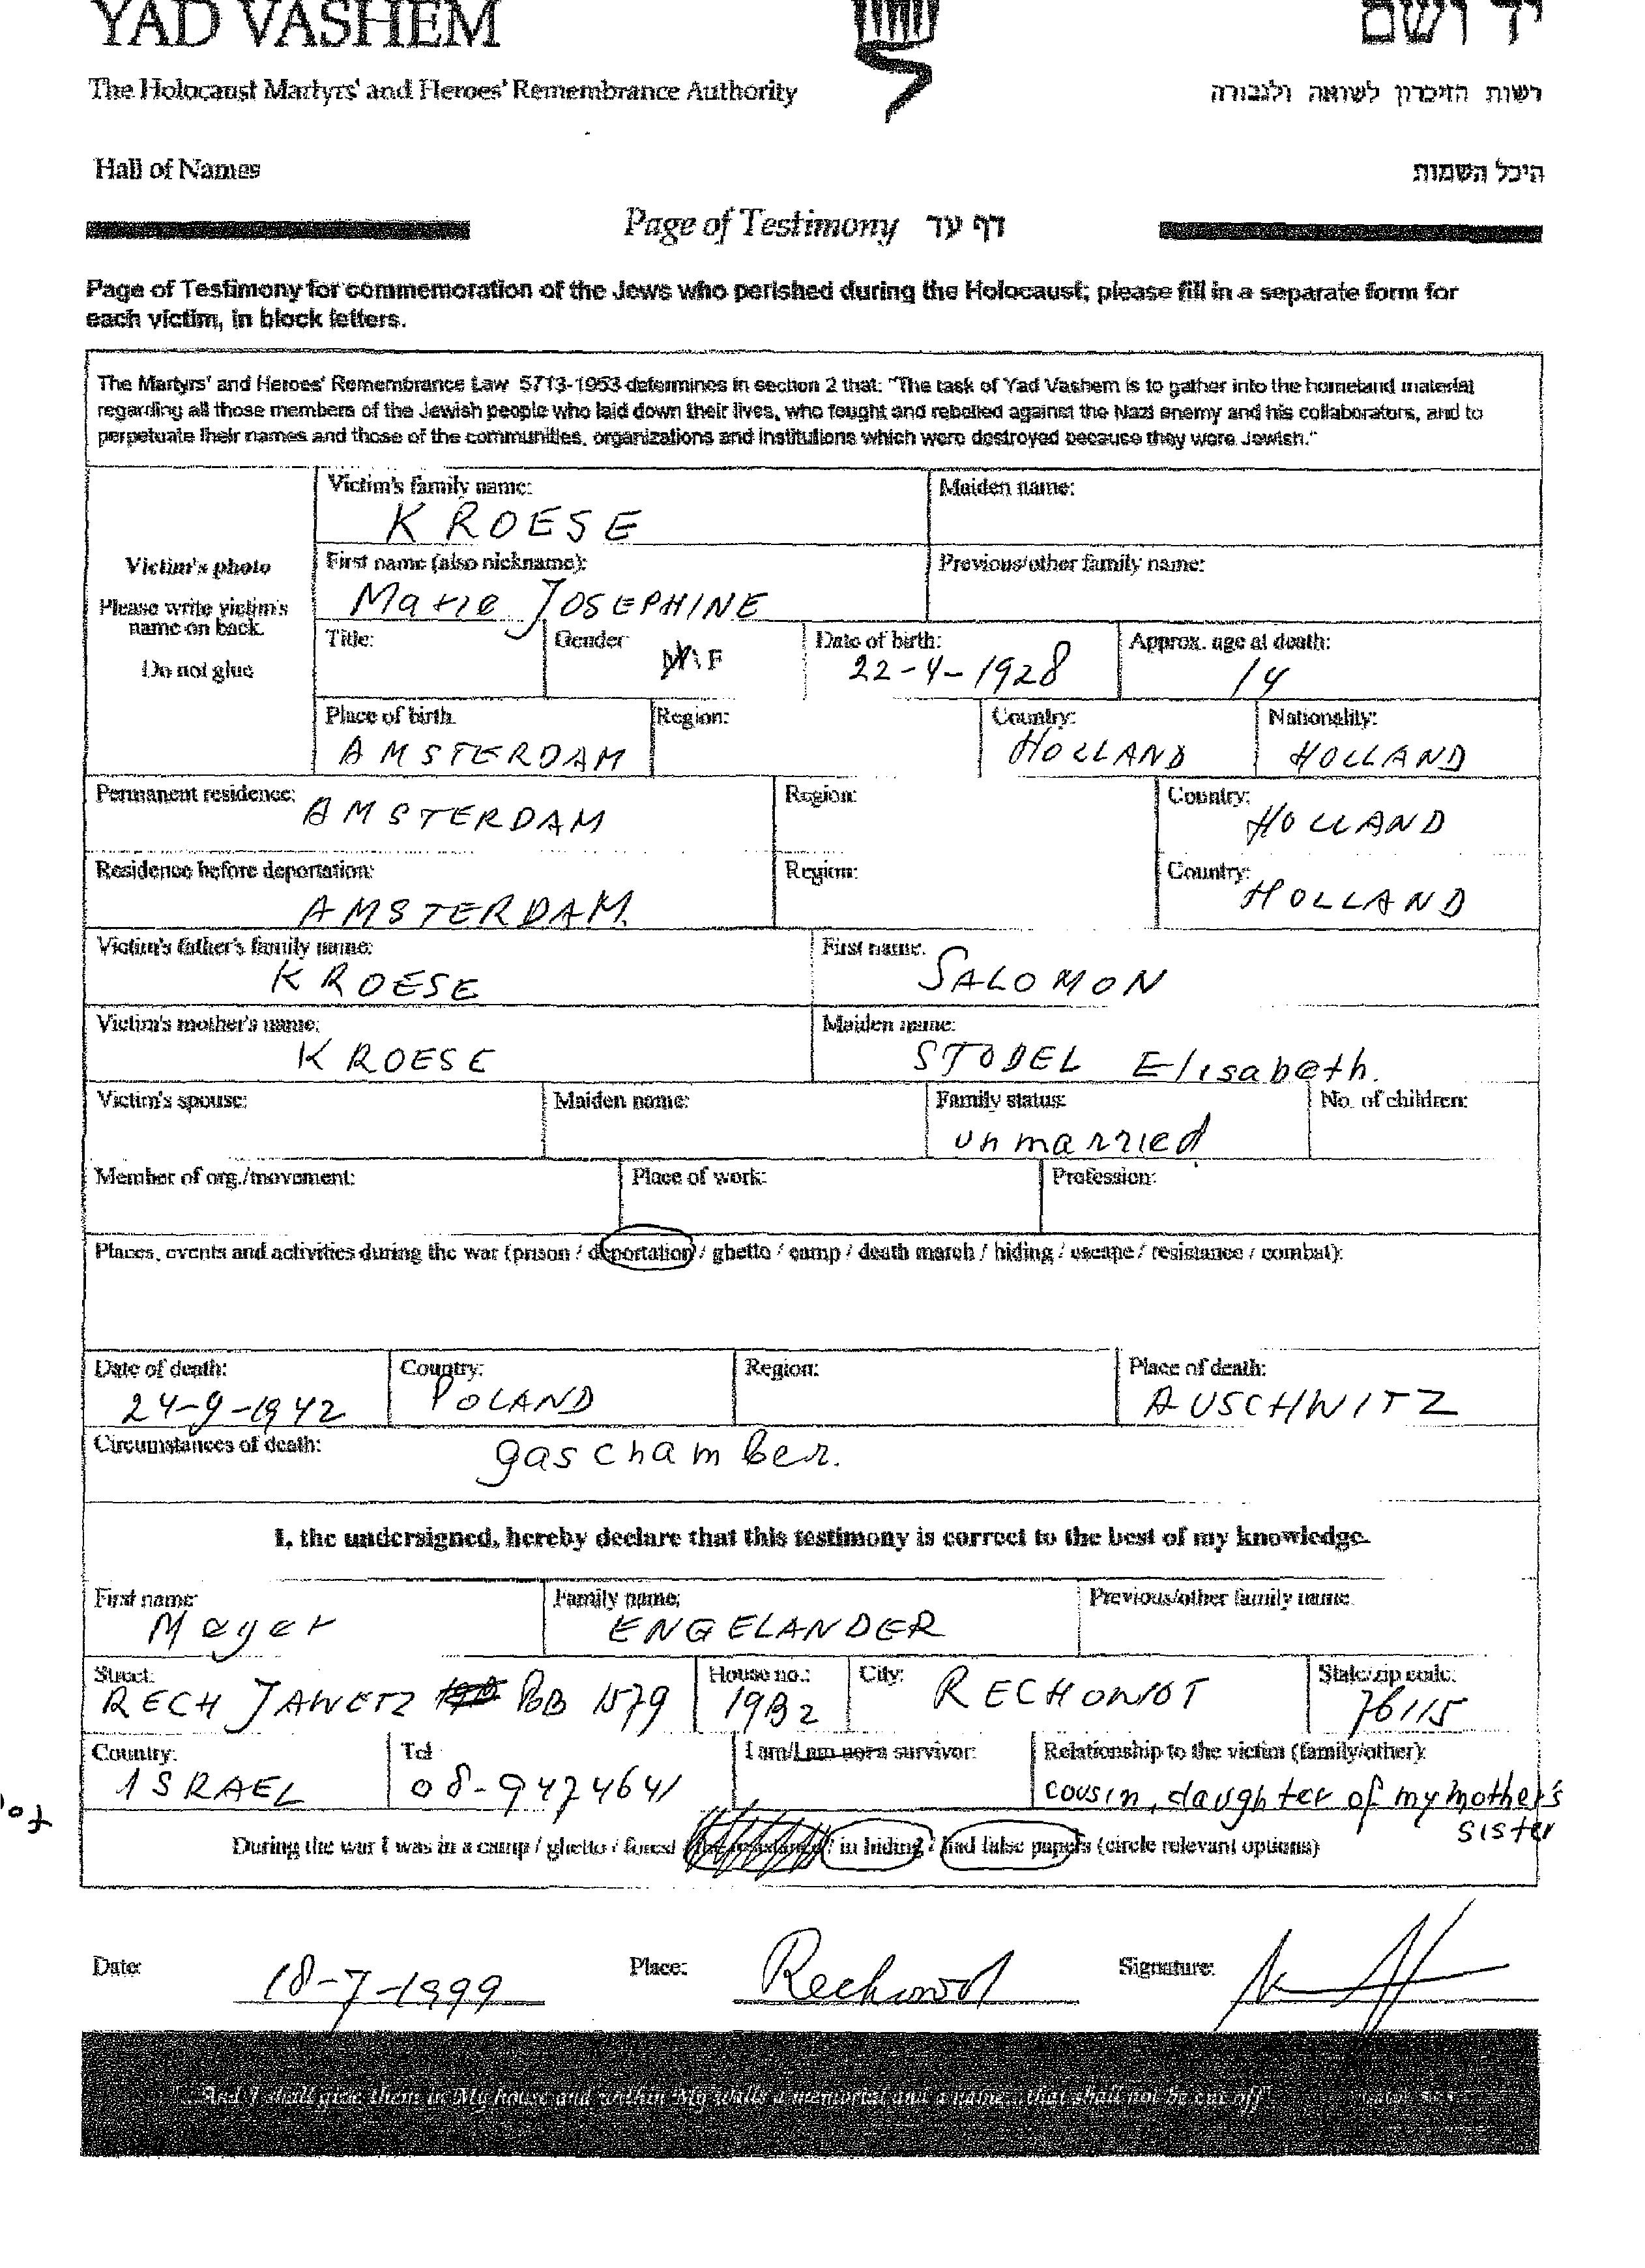 YAD VASHEM
יד ושם
The Holocaust Martyrs' and Heroes' Remembrance Authority
רשות הזיכרון לשואה ולגבורה
Hall of Names
היכל השמות
Page of Testimony דף עד
Page of Testimony for commemoration of the Jews who perished during the Holocaust; please fill in a separate form for
each victim, in block letters.
The Martyrs' and Heroes' Remembrance Law 5713-1953 determines in section 2 that: "The task of Yad Vashem is to gather into the homeland material
regarding all those members of the Jewish people who laid down their lives, who fought and rebelled against the Nazi enemy and his collaborators, and to
perpetuate their names and those of the communities, organizations and institutions which were destroyed because they were Jewish."
Victim's photo
Please write victim's
name on back.
Do not glue
Victim's family name:
KROESE
Maiden name:
First name (also nickname):
Marie JOSEPHINE
Previous/other family name:
Title:
Gender
M \ F
Date of birth:
22-4-1928
Approx. age at death:
14
Place of birth.
AMSTERDAM
Region:
Country:
HOLLAND
Nationality:
HOLLAND
Permanent residence:
AMSTERDAM
Region:
Country:
HOLLAND
Residence before deportation:
AMSTERDAM.
Region:
Country:
HOLLAND
Victim's father's family name:
KROESE
First name.
SALOMON
Victim's mother's name:
KROESE
Maiden name:
STODEL Elisabeth.
Victim's spouse:
Maiden name:
Family status:
unmarried
No. of children:
Member of org./movement:
Place of work:
Profession:
Places, events and activities during the war (prison / deportation / ghetto / camp / death march / hiding / escape / resistance / combat):
Date of death:
24-9-1942
Country:
POLAND
Region:
Place of death:
AUSCHWITZ
Circumstances of death:
gaschamber.
I, the undersigned, hereby declare that this testimony is correct to the best of my knowledge.
First name
Meyer
Family name:
ENGELANDER
Previous/other family name
Street:
RECH JAWETZ POB 1579
House no.:
19B2
City:
RECHOWOT
State/zip code:
76115
Country:
ISRAEL
Tel
08-9474641
I am/I am not a survivor:
Relationship to the victim (family/other):
cousin, daughter of my mother's
sister
During the war I was in a camp / ghetto / forest / the resistance / in hiding / had false papers (circle relevant options)
Date:
18-7-1999
Place:
Rechowot
Signature:
"...And I shall give them in My house and within My walls a memorial and a name...that shall not be cut off"